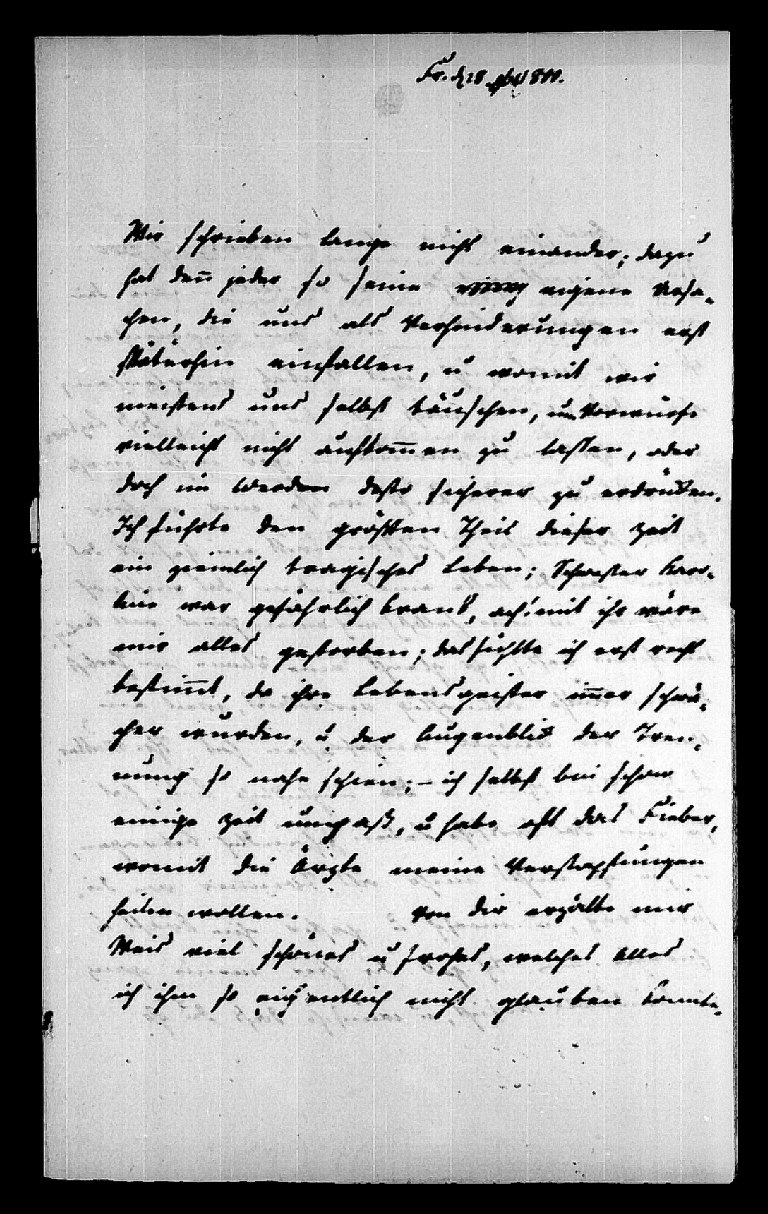 Fr. d 28 9br 800.
Wir schrieben lange nicht einander; dazu
hat den̄ jeder so seine eigene Ursa-
chen, die uns als Verhinderungen erst
späterhin einfallen, u womit wir
meistens uns selbst täuschen, um Vorwürfe
vielleicht nicht aufkom̄en zu lassen, oder
doch im Werden desto sicherer zu erdrüken.
Ich führte den größten Theil dieser Zeit
ein ziemlich tragisches Leben; Schwester Karo-
line war gefährlich krank, ach! mit ihr wäre
mir alles gestorben; das fühlte ich erst recht
bestim̄t, da ihre Lebensgeister im̄er schwä-
cher wurden, u der Augenblik der Tren-
nung so nahe schien; – ich selbst bin schon
einige Zeit unpaß, u habe oft das Fieber,
womit die Ärzte meine Verstopfungen
heilen wollen. Von dir erzälte mir
Weis viel schönes u frohes, welches Alles
ich ihm so eigentlich nicht glauben konnte.